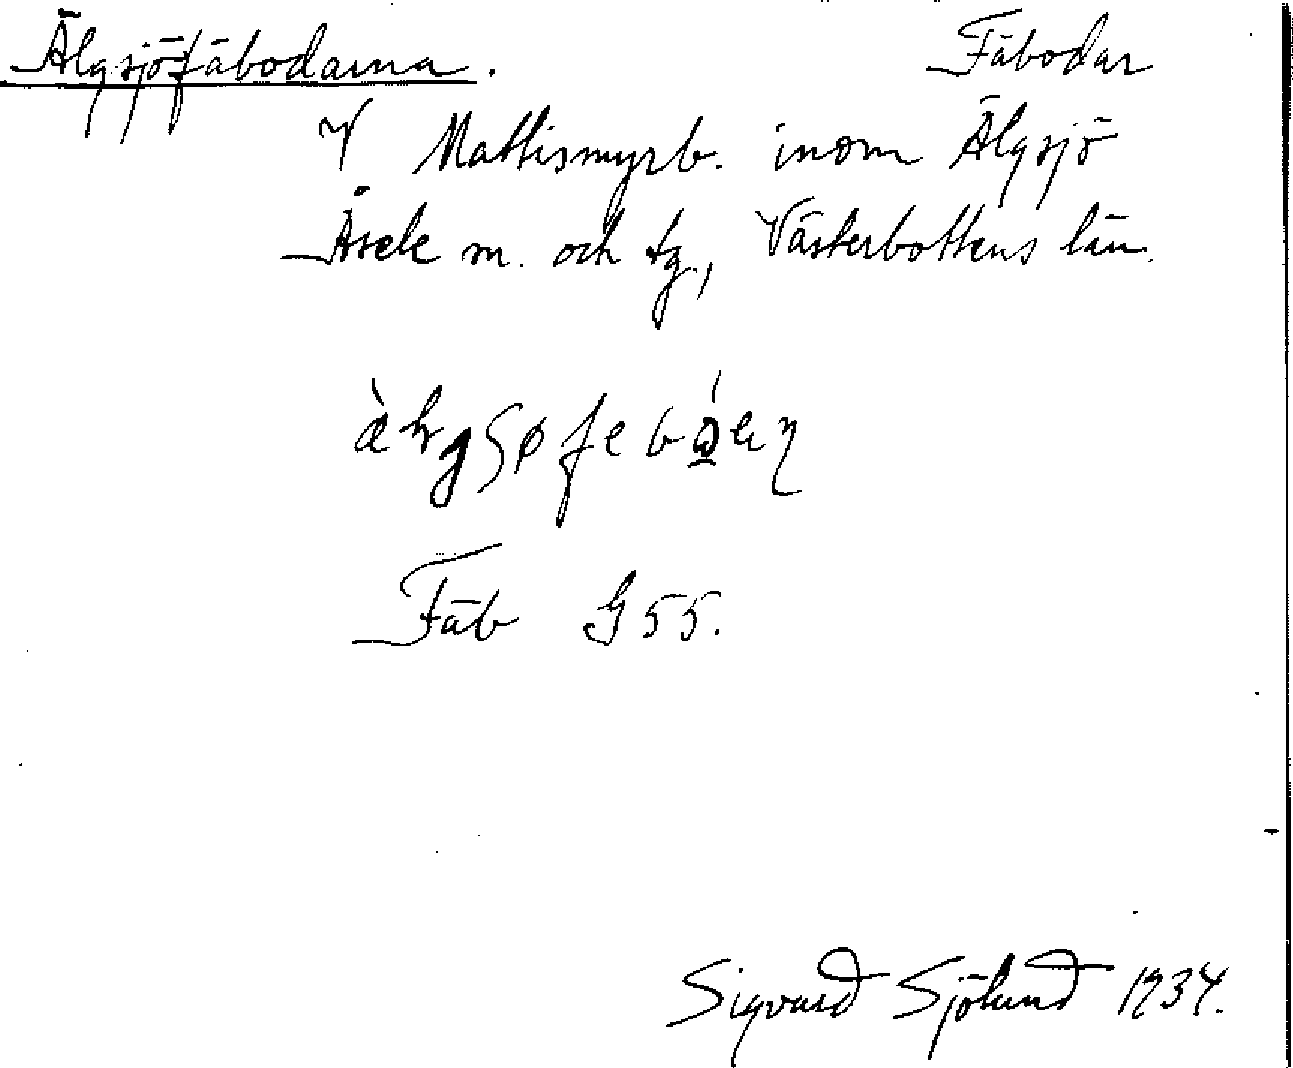 Älgsjöfäbodarna. Fäbodar
V Mattismyrb. inom Älgsjö
Åsele sn. och tg., Västerbottens län.
Fäb G 55.
Sigvard Sjölund 1934.